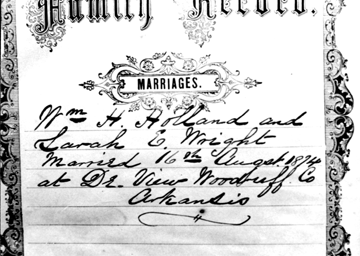 Family Record.
MARRIAGES.
Wm H. Holland and
Sarah E. Wright
Married 16th August 1874
at De View Woodruff Co
Arkansis